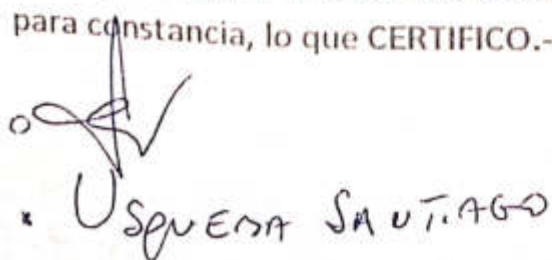 para constancia, lo que CERTIFICO.-
SANTIAGO